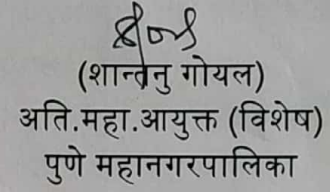 (शान्तनु गोयल)
अति.महा.आयुक्त (विशेष)
पुणे महानगरपालिका